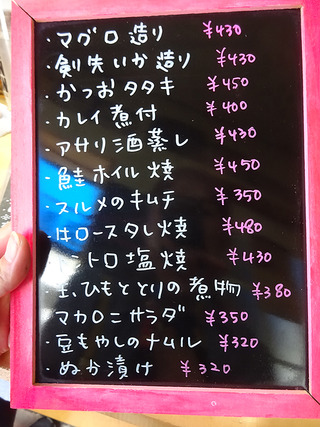 ・マグロ造り ¥430
・剣先いか造り ¥430
・かつおタタキ ¥450
・カレイ煮付 ¥400
・アサリ酒蒸し ¥430
・鮭ホイル焼 ¥450
・スルメのキムチ ¥350
・牛ロースタレ焼 ¥480
トロ塩焼 ¥430
玉ひもととりの煮物 ¥380
マカロニサラダ ¥350
・豆もやしのナムル ¥320
・ぬか漬け ¥320